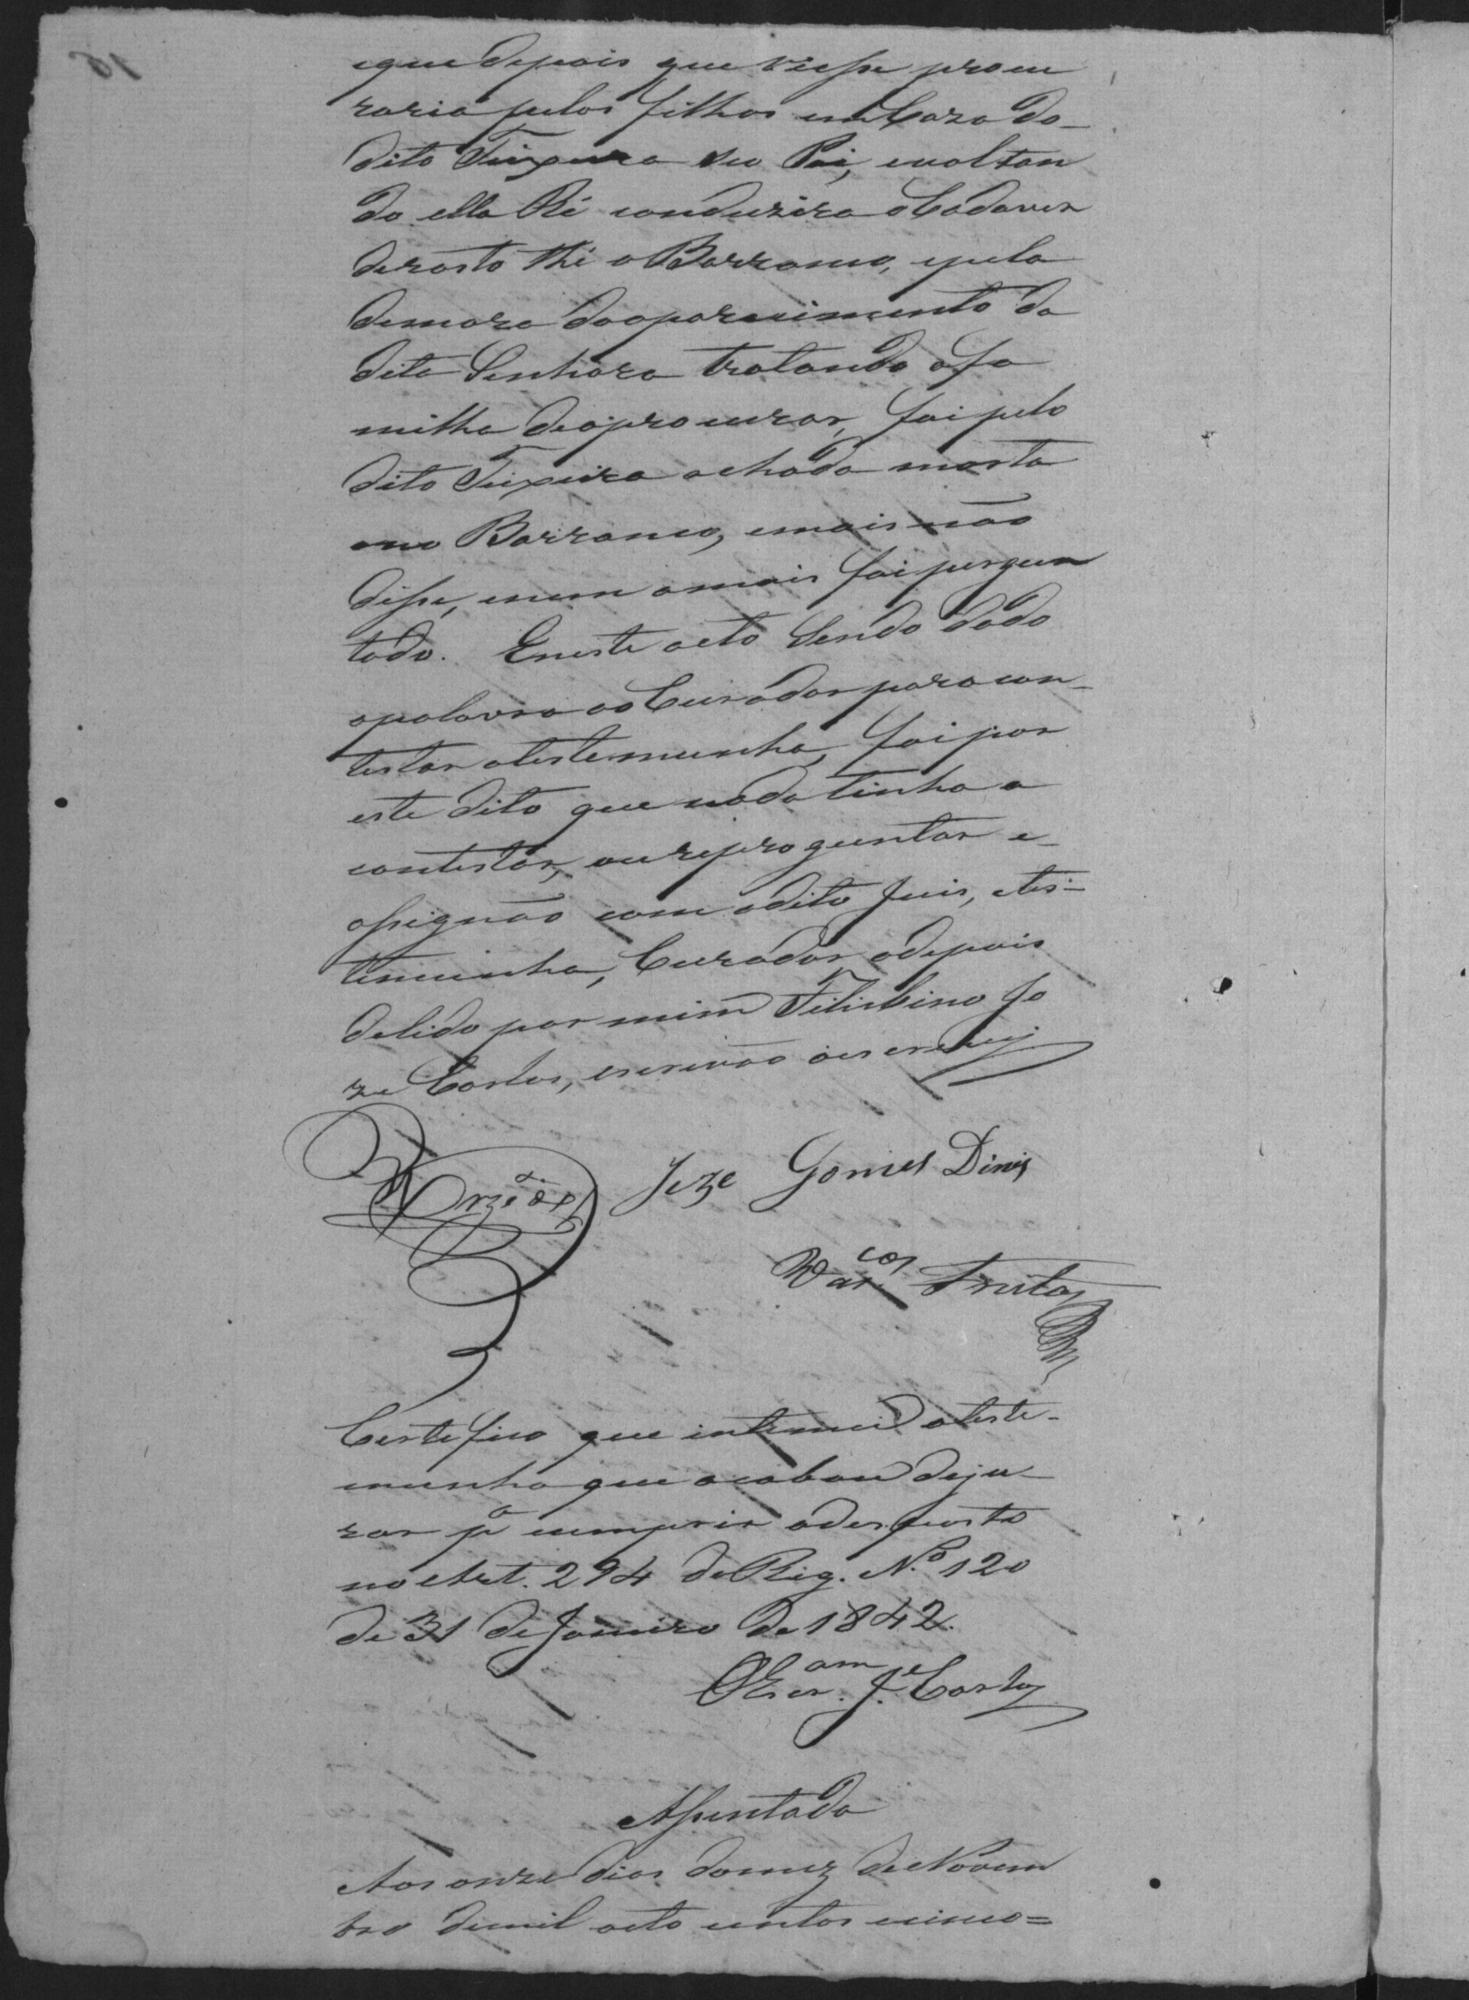 eque depois que viesse procu
raria pelos filhos em Caza do
dito Teixeira seo Pai, evoltan
do ella Ré conduzira o Cadaver
derasto thé o Barranco, epela
demora do aparecimento da
dita Senhora tratando afa
milha deaprocurar, foi pelo
dito Teixeira achada morta
no Barranco, emais não
disse, enem omais foi pergun
tado. Eneste acto sendo dado
apalavra ao Curador para con-
testar atestemunha, foi por
este dito que nada tinha a
contestar, ou reproguntar e
assignão com odito Juis, etes-
temunha, Curador edepois
delido por mim Filisbino Jo
ze Cortes, escrivão oescrevy
Joze Gomes Dinis
Vas.cos Freitas
Certifico que intimei a teste-
munha que acabou deju-
rar pa cumprir odisposto
no Art. 294 do Reg. No 120
de 31 de Janeiro de 1842.
OEscram J.e Cortes
Assentada
Aos onze dias domez de Novem
bro demil oito centos cinco=